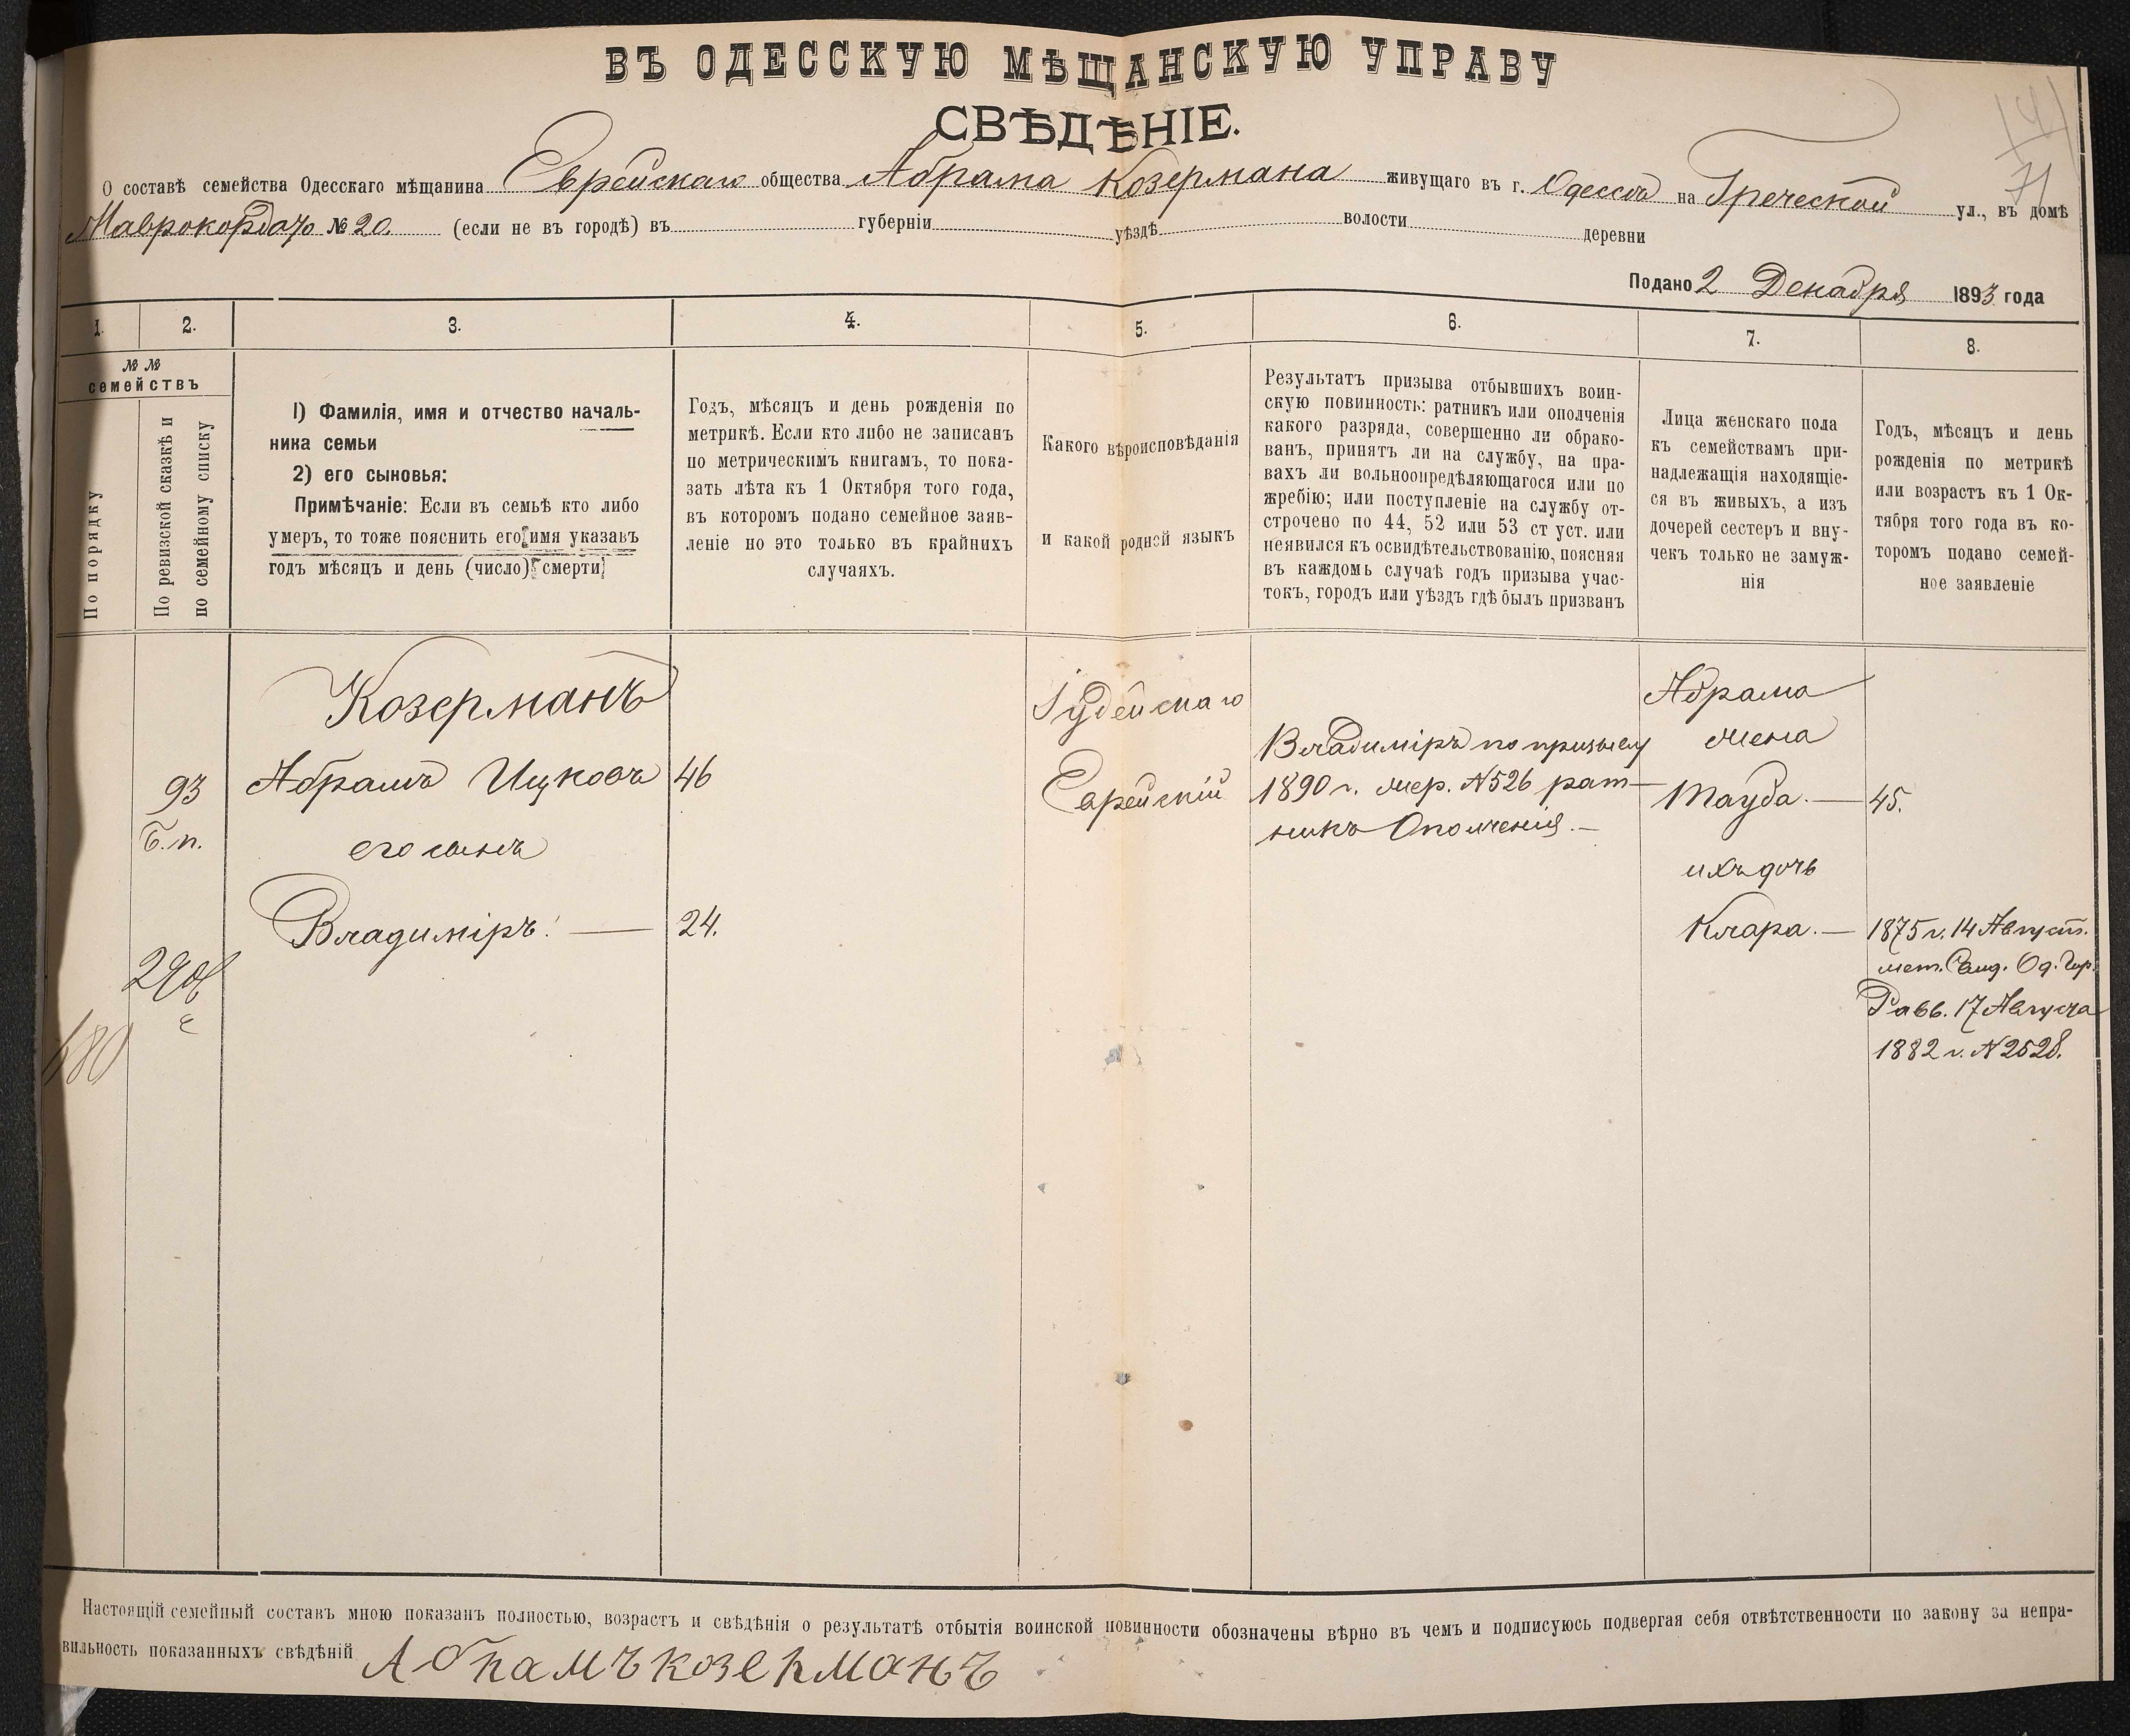 ВЪ ОДЕССКУЮ МѢЩАНСКУЮ УПРАВУ
СВѢДѢНІЕ.
О составѣ семейства Одесскаго мѣщанина Еврейскаго общества Абрама Козермана живущаго въ г. Одессѣ на Греческой ул., въ домѣ
71
Маврокордато № 20. (если не въ городѣ) въ губерніи уѣздѣ волости деревни
Подано 2 Декабря 1893 года
1. 2. 3. 4. 5. 6. 7. 8.
№ №
семействъ
По порядку
По ревизской сказкѣ и
по семейному списку
1) Фамилія, имя и отчество началь-
ника семьи
2) его сыновья:
Примѣчаніе: Если въ семьѣ кто либо
умеръ, то тоже пояснить его имя указавъ
годъ мѣсяцъ и день (число) смерти
Годъ, мѣсяцъ и день рожденія по
метрикѣ. Если кто либо не записанъ
по метрическимъ книгамъ, то пока-
зать лѣта къ 1 Октября того года,
въ которомъ подано семейное заяв-
леніе но это только въ крайнихъ
случаяхъ.
Какого вѣроисповѣданія
и какой родной языкъ
Результатъ призыва отбывшихъ воин-
скую повинность: ратникъ или ополченія
какого разряда, совершенно ли обрако-
ванъ, принятъ ли на службу, на пра-
вахъ ли вольноопредѣляющагося или по
жребію; или поступленіе на службу от-
строчено по 44, 52 или 53 ст уст. или
неявился къ освидѣтельствованію, поясняя
въ каждомъ случаѣ годъ призыва учас-
токъ, городъ или уѣздъ гдѣ былъ призванъ
Лица женскаго пола
къ семействамъ при-
надлежащія находящіе-
ся въ живыхъ, а изъ
дочерей сестеръ и вну-
чекъ только не замуж-
нія
Годъ, мѣсяцъ и день
рожденія по метрикѣ
или возрастъ къ 1 Ок-
тября того года въ ко-
торомъ подано семей-
ное заявленіе
93
Б.п.
180
Козерманъ
Абрамъ Ицковъ 46
его сынъ
Владиміръ. — 24.
Іудейскаго
Еврейскій
Владиміръ по призыву
1890 г. жер. №526 рат-
никъ Ополченія. —
Абрама
жена
Тауба. — 45.
ихъ дочь
Клара. — 1875 г. 14 Август.
мет. Свид. Од. Гор.
Равв. 17 Августа
1882 г. № 2528.
Настоящій семейный составъ мною показанъ полностью, возрастъ и свѣдѣнія о результатѣ отбытія воинской повинности обозначены вѣрно въ чемъ и подписуюсь подвергая себя отвѣтственности по закону за непра-
вильность показанныхъ свѣдѣній Абрамъ Козерманъ